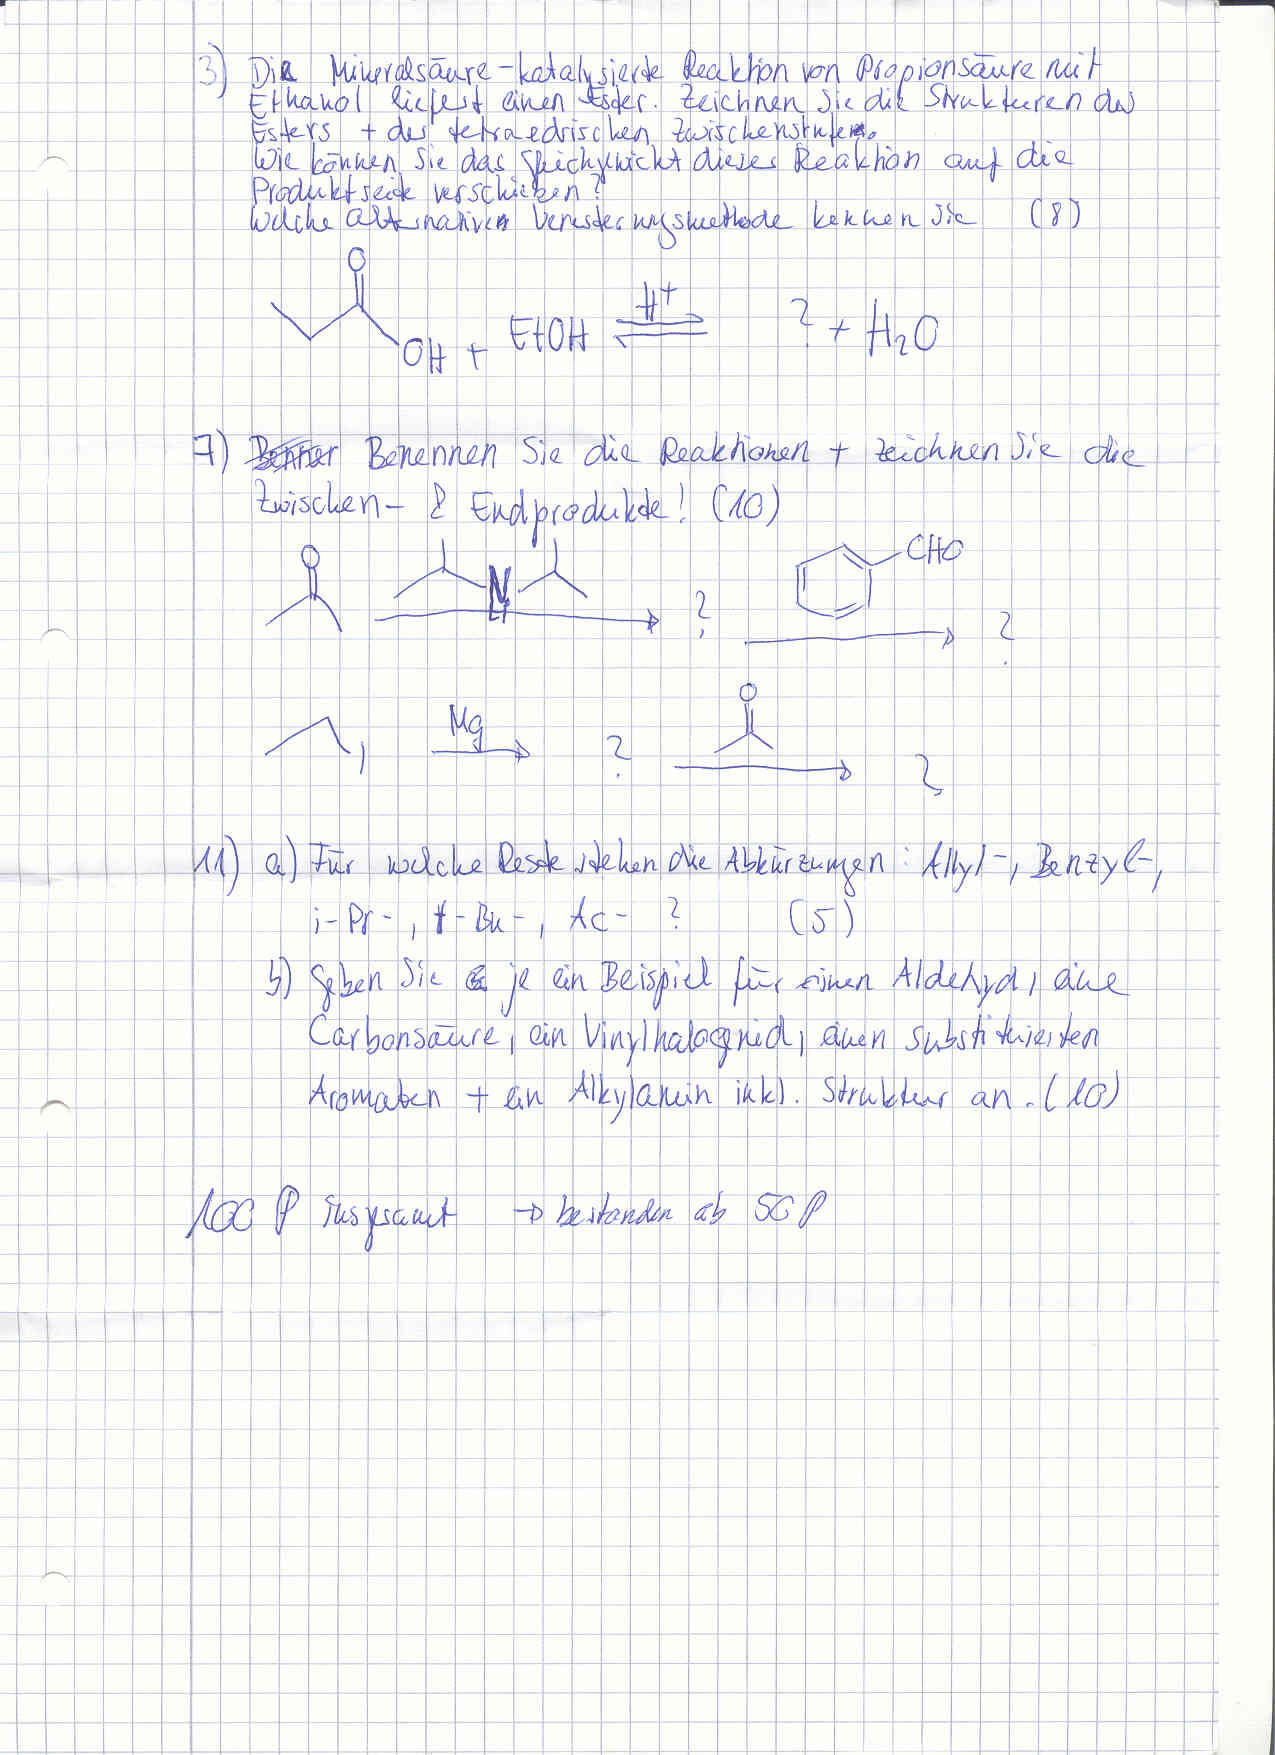 3) Die Mineralsäure-katalysierte Reaktion von Propionsäure mit
Ethanol liefert einen Ester. Zeichnen Sie die Strukturen des
Esters + der tetraedrischen Zwischenstufen.
Wie können Sie das Gleichgewicht dieser Reaktion auf die
Produktseite verschieben?
Welche alternativen Veresterungsmethode kennen Sie (8)
O
OH + EtOH H+ ? + H2O
7) Benennen Sie die Reaktionen + zeichnen Sie die
Zwischen- & Endprodukte! (10)
O N Li ? CHO ?
I Mg ? O ?
11) a) Für welche Reste stehen die Abkürzungen: Allyl-, Benzyl-,
i-Pr-, t-Bu-, Ac- ? (5)
b) Geben Sie je ein Beispiel für einen Aldehyd, eine
Carbonsäure, ein Vinylhalogenid, einen substituierten
Aromaten + ein Alkylamin inkl. Struktur an. (10)
100 P insgesamt → bestanden ab 50 P